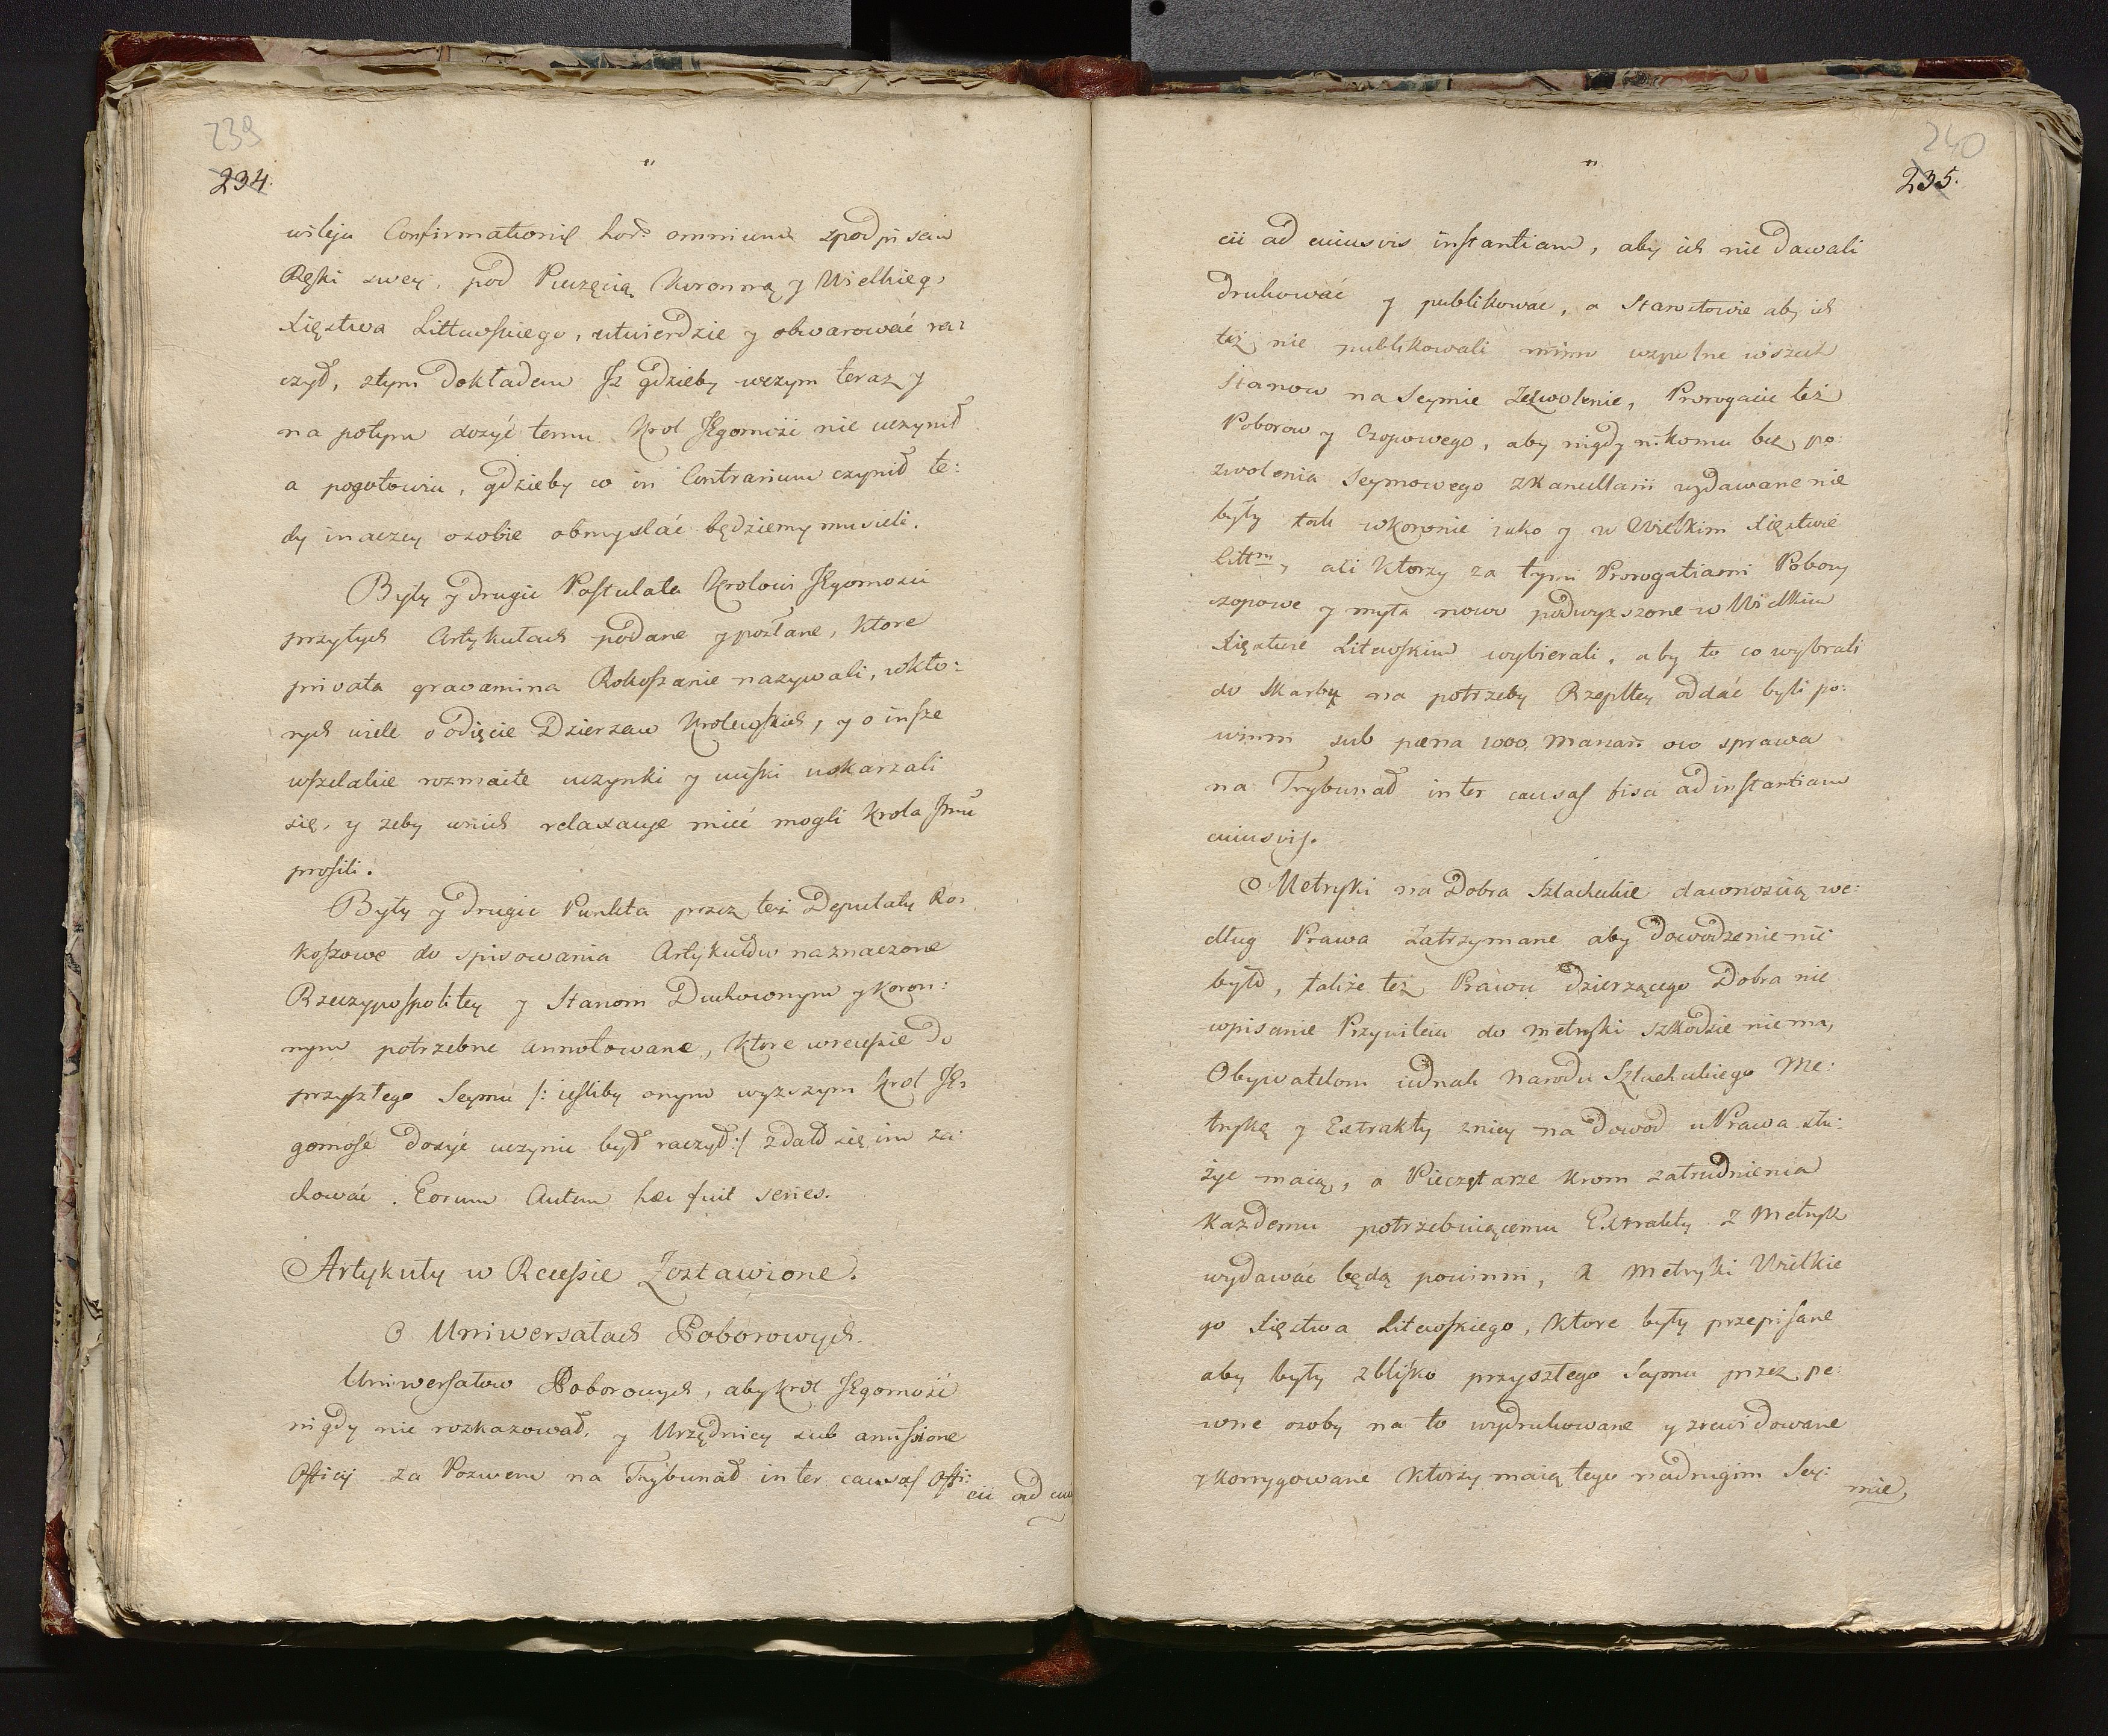 239
234.
wileju Confirmationis hor: omnium zpodpisem
Ręski swey, pod Pieczęcią Koronną y Wielkieg:
Xięstwa Littewskiego, utwierdzic y obwarować ra:
czył, ztym Dokładem Jż gdzieby wczym teraz y
na potym dosyć temu Krol JEgomość nie uczynił
a pogotowiu, gdzieby co in Contrarium czynił te:
dy inaczey osobie obmyslać będziemy musieli.
Były y drugie Postulata Krolowi JEgomosci
przytych Artykułach podane y posłane, Ktore
privata gravamina Rokoszanie nazywali, wkto:
rych wiele o odięcie Dzierzaw Krolewskich, y o insze
wszelakie rozmaite uczynki y uciski uskarzali
się, y zeby wnich relaxacye mieć mogli Krola Jmci
prosili.
Były y drugie Punkta przez też Deputaty Ro:
koszowe do spisowania Artykułow naznaczone
Rzeczypospolitey y Stanom Duchownym y Koron:
nym potrzebne annotowane, Ktore wrecessie do
przyszłego Seymu /: iesliby onym wyzszym Krol JE:
gomość dosyć uczynic był raczył :/ zdało się im za:
chować. Eorum Autem haec fuit series.
Artykuły w Recessie Zostawione.
O Uniwersałach Poborowych.
Uniwersałow Poborowych, aby Krol JEgomość
nigdy nie rozkazował, y Urzędnicy sub amissione
Officij za Pozwem na Trybunał inter causas offi:
cii ad cuiu
240
235.
cii ad cuiusvis instantiam, aby ich nie dawali
Drukować y publikować, a Starostowie aby ich
też nie publikowali mimo wzpolne wszech
Stanow na Seymie Zezwolenie, Prorogacie też
Poborow y Czopowego, aby nigdy nikomu bez po:
zwolenia Seymowego zKancellarii wydawane nie
były tak wkoronie iako y w Wielkim Xięstwie
Littm, a ci Ktorzy za tymi Prorogatiami Pobory
czopowe y myta nowo podwyzszone w Wielkim
Xięstwie Litewskim wybierali, aby to co wybrali
do Skarbu na potrzeby Rzeptey oddać byli po:
winni sub paena 1000, Marcar: oco sprawa
na Trybunał inter causas fisci ad instantiam
cuiusvis.
O Metryki na Dobra Szlacheckie dawnoscią we:
dług Prawa Zatrzymane aby dowodzenie nie
było, także też Prawu Dzierzącego Dobra nie
wpisanie Przywileiu do metryki szkodzic niema,
Obywatelom iednak Narodu Szlacheckiego Me:
trykę y Extrakty zniey na dowod u Prawa słu:
życ maią, a Pieczętarze Krom zatrudnienia
Kazdemu potrzebuiącemu Extrakty z Metryk
wydawać będą powinni, A Metryki Wielkie
go Xięstwa Litewskiego, Ktore były przepisane
aby były zblisko przyszłego Seymu przez pe:
wne osoby na to wydrukowane y zrewidowane
y Korrygowane Ktorzy maią tego nadrugim Sey:
mie,